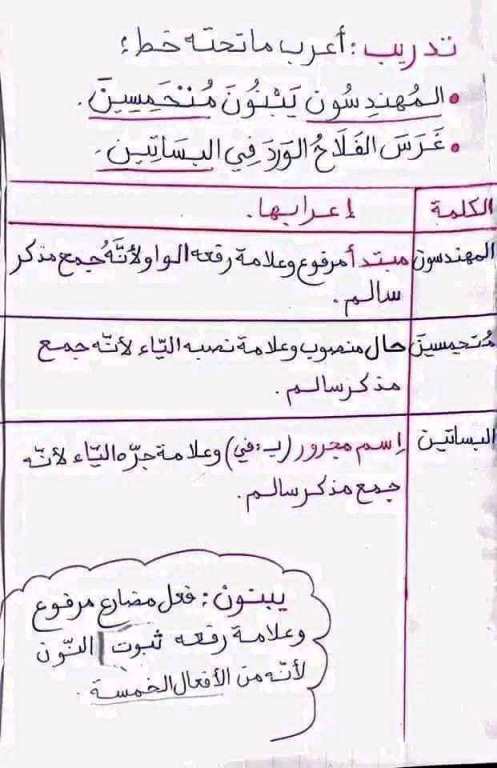 تدريب: أعرب ما تحته خط:
• المُهندسُون يَبْنُونَ مُتَحَمِسِينَ.
• غَرَسَ الفَلَاحُ الوَرْدَ فِي البسَاتِين.
الكلمة إعرابها.
المهندسون مبتدأ مرفوع وعلامة رفعه الواو لأنَّهُ جمع مذكر
سالم.
مُتحمِسينَ حال منصوب وعلامة نصبه اليّاء لأنّه جمع
مذكر سالم.
البساتين إسم مجرور (ب: في) وعلامة جرّه اليّاء لأنّه
جمع مذكر سالم.
يبنون: فعل مضارع مرفوع
وعلامة رفعه ثبوت النّون
لأنّه من الأفعال الخمسة.